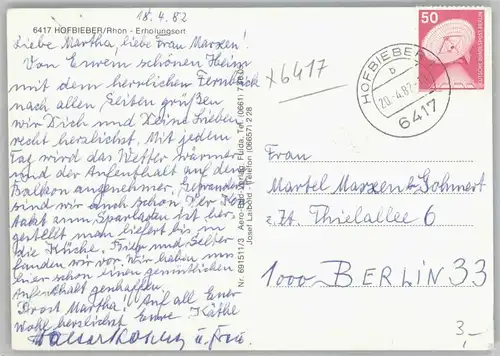 18.4.82
6417 HOFBIEBER/Rhön - Erholungsort
Liebe Martha, liebe Frau Marxen!
Von Eurem schönen Heim
mit dem herrlichen Fernblick
nach allen Seiten grüßen
wir Dich und Deine Lieben
recht herzlichst. Mit jedem
Tag wird das Wetter wärmer
und der Aufenthalt auf dem
Balkon angenehmer. Gewandert
sind wir auch schon. Der Kon-
takt zum Sparladen ist her-
gestellt man liefert bis in
die Küche. und Selter
fanden wir vor. Wir haben uns
hier schon einen gemütlichen
Aufenthalt geschaffen.
Prost Martha! Auf all Euer
Wohl herzlichst Eure Käthe
u. Frau.
x6417
50
DEUTSCHE BUNDESPOST BERLIN
HOFBIEBER
b
20.-4.82
6417
Nr. 691511/3
Josef Laibold, Telefon (06657) 2 28
Frau
Martel Marxen
z. Zt. Thielallee 6
1000 BERLIN 33
3,-